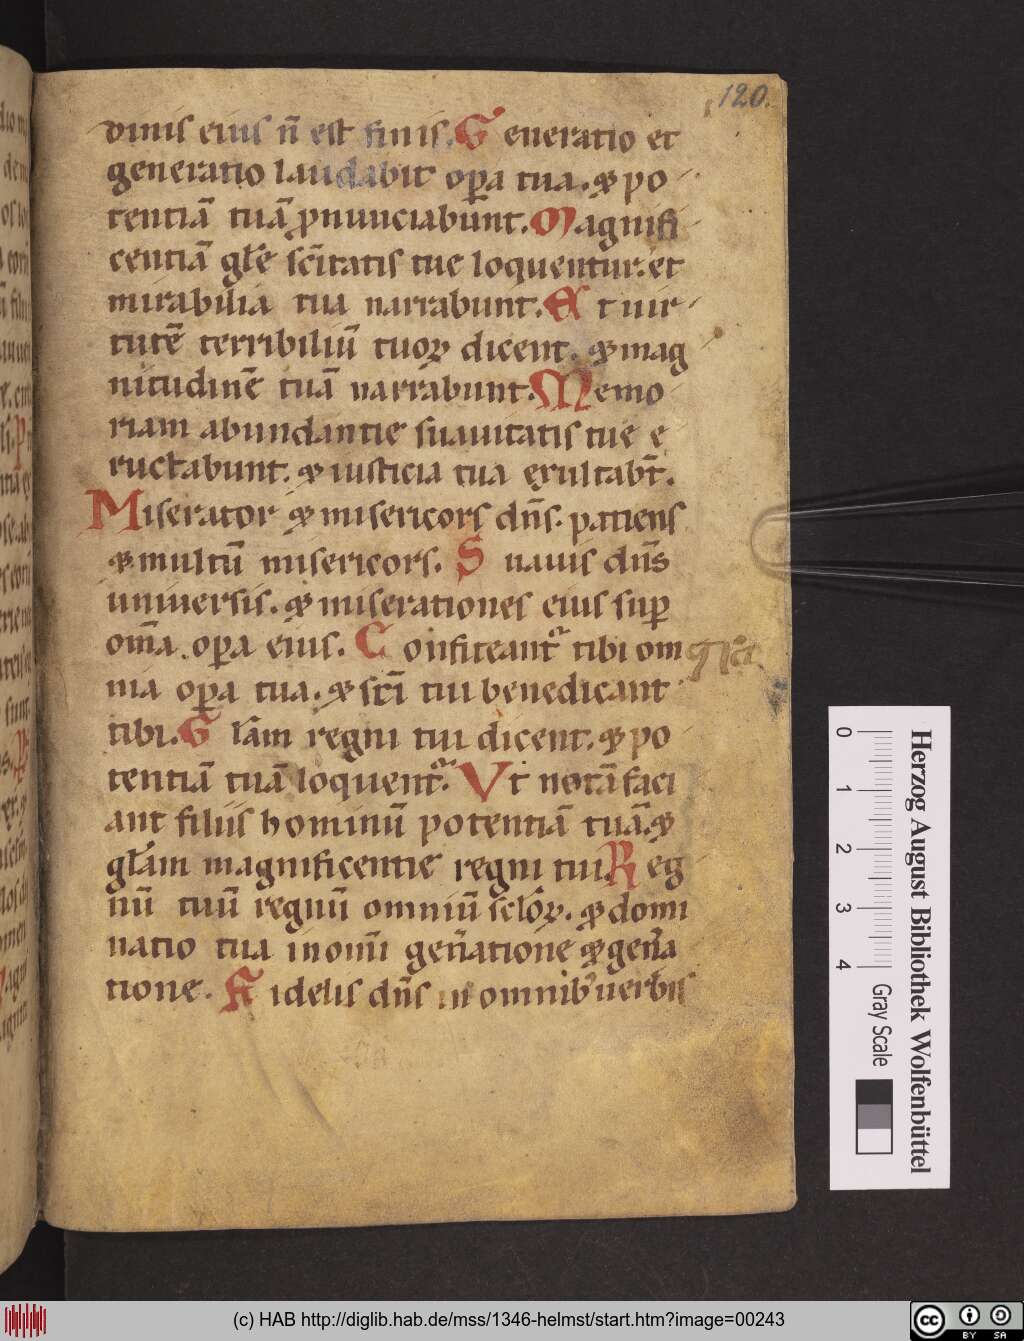 120.
dinis eius n̄ est finis. Generatio et
generatio laudabit oꝑa tua. & po
tentiā tuā ꝓnunciabunt. Magnifi
centiā glē sc̄itatis tue loquentur. et
mirabilia tua narrabunt. Et uir
tutē terribiliū tuoꝝ dicent. & mag
nitudinē tuā narrabunt. Memo
riam abundantie suauitatis tue e
ructabunt. & iusticia tua exultabt̄.
Miserator & misericors dn̄s. patiens
& multū misericors. Suauis dn̄s
uniuersis. & miserationes eius suꝑ
om̄a oꝑa eius. Confiteant᷑ tibi om
nia oꝑa tua. & sc̄i tui benedicant
tibi. Glam̄ regni tui dicent. & po
tentiā tuā loquent᷑. Vt notā faci
ant filiis hominū potentiā tuā. &
glam̄ magnificentie regni tui. Reg
nū tuū regnū omniū sclōꝝ. & domi
natio tua in omi gen̄atione & gen̄a
tione. Fidelis dn̄s in omnibꝰ uerbis
Herzog August Bibliothek Wolfenbüttel
0 1 2 3 4
Gray Scale
(c) HAB http://diglib.hab.de/mss/1346-helmst/start.htm?image=00243
cc
BY SA